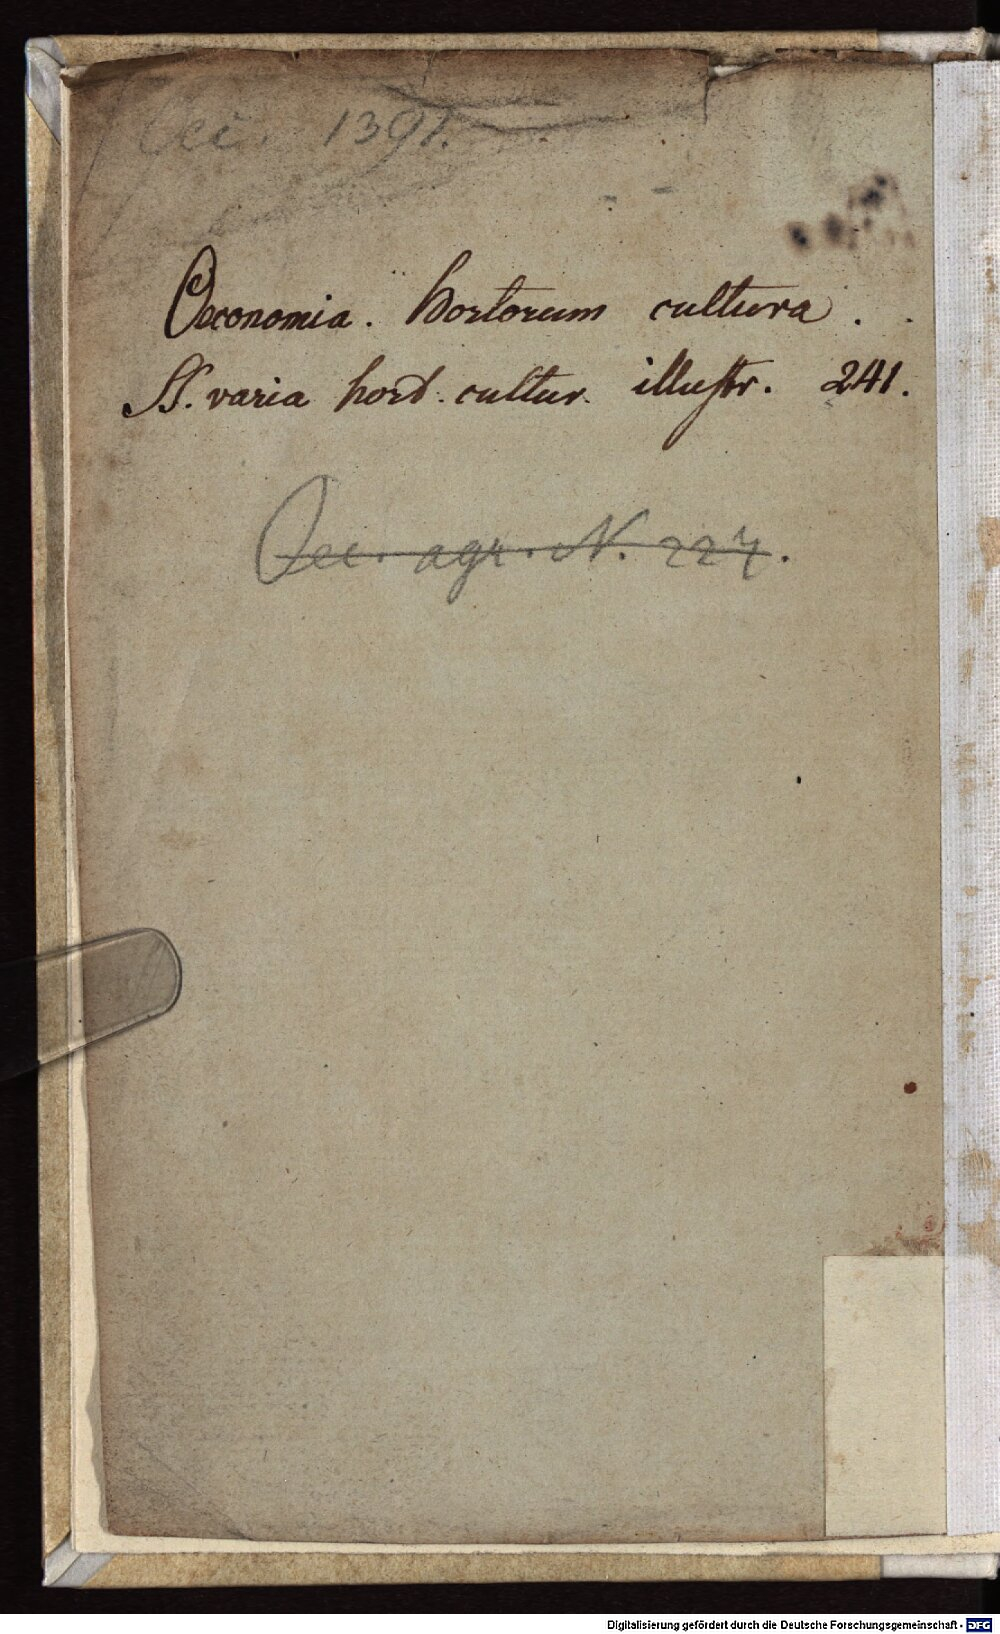 Oec. 1391.
Oeconomia. hortorum cultura.
SS. varia hort. cultur. illustr. 241.
Oec. agr. N. 227.
Digitalisierung gefördert durch die Deutsche Forschungsgemeinschaft - DFG